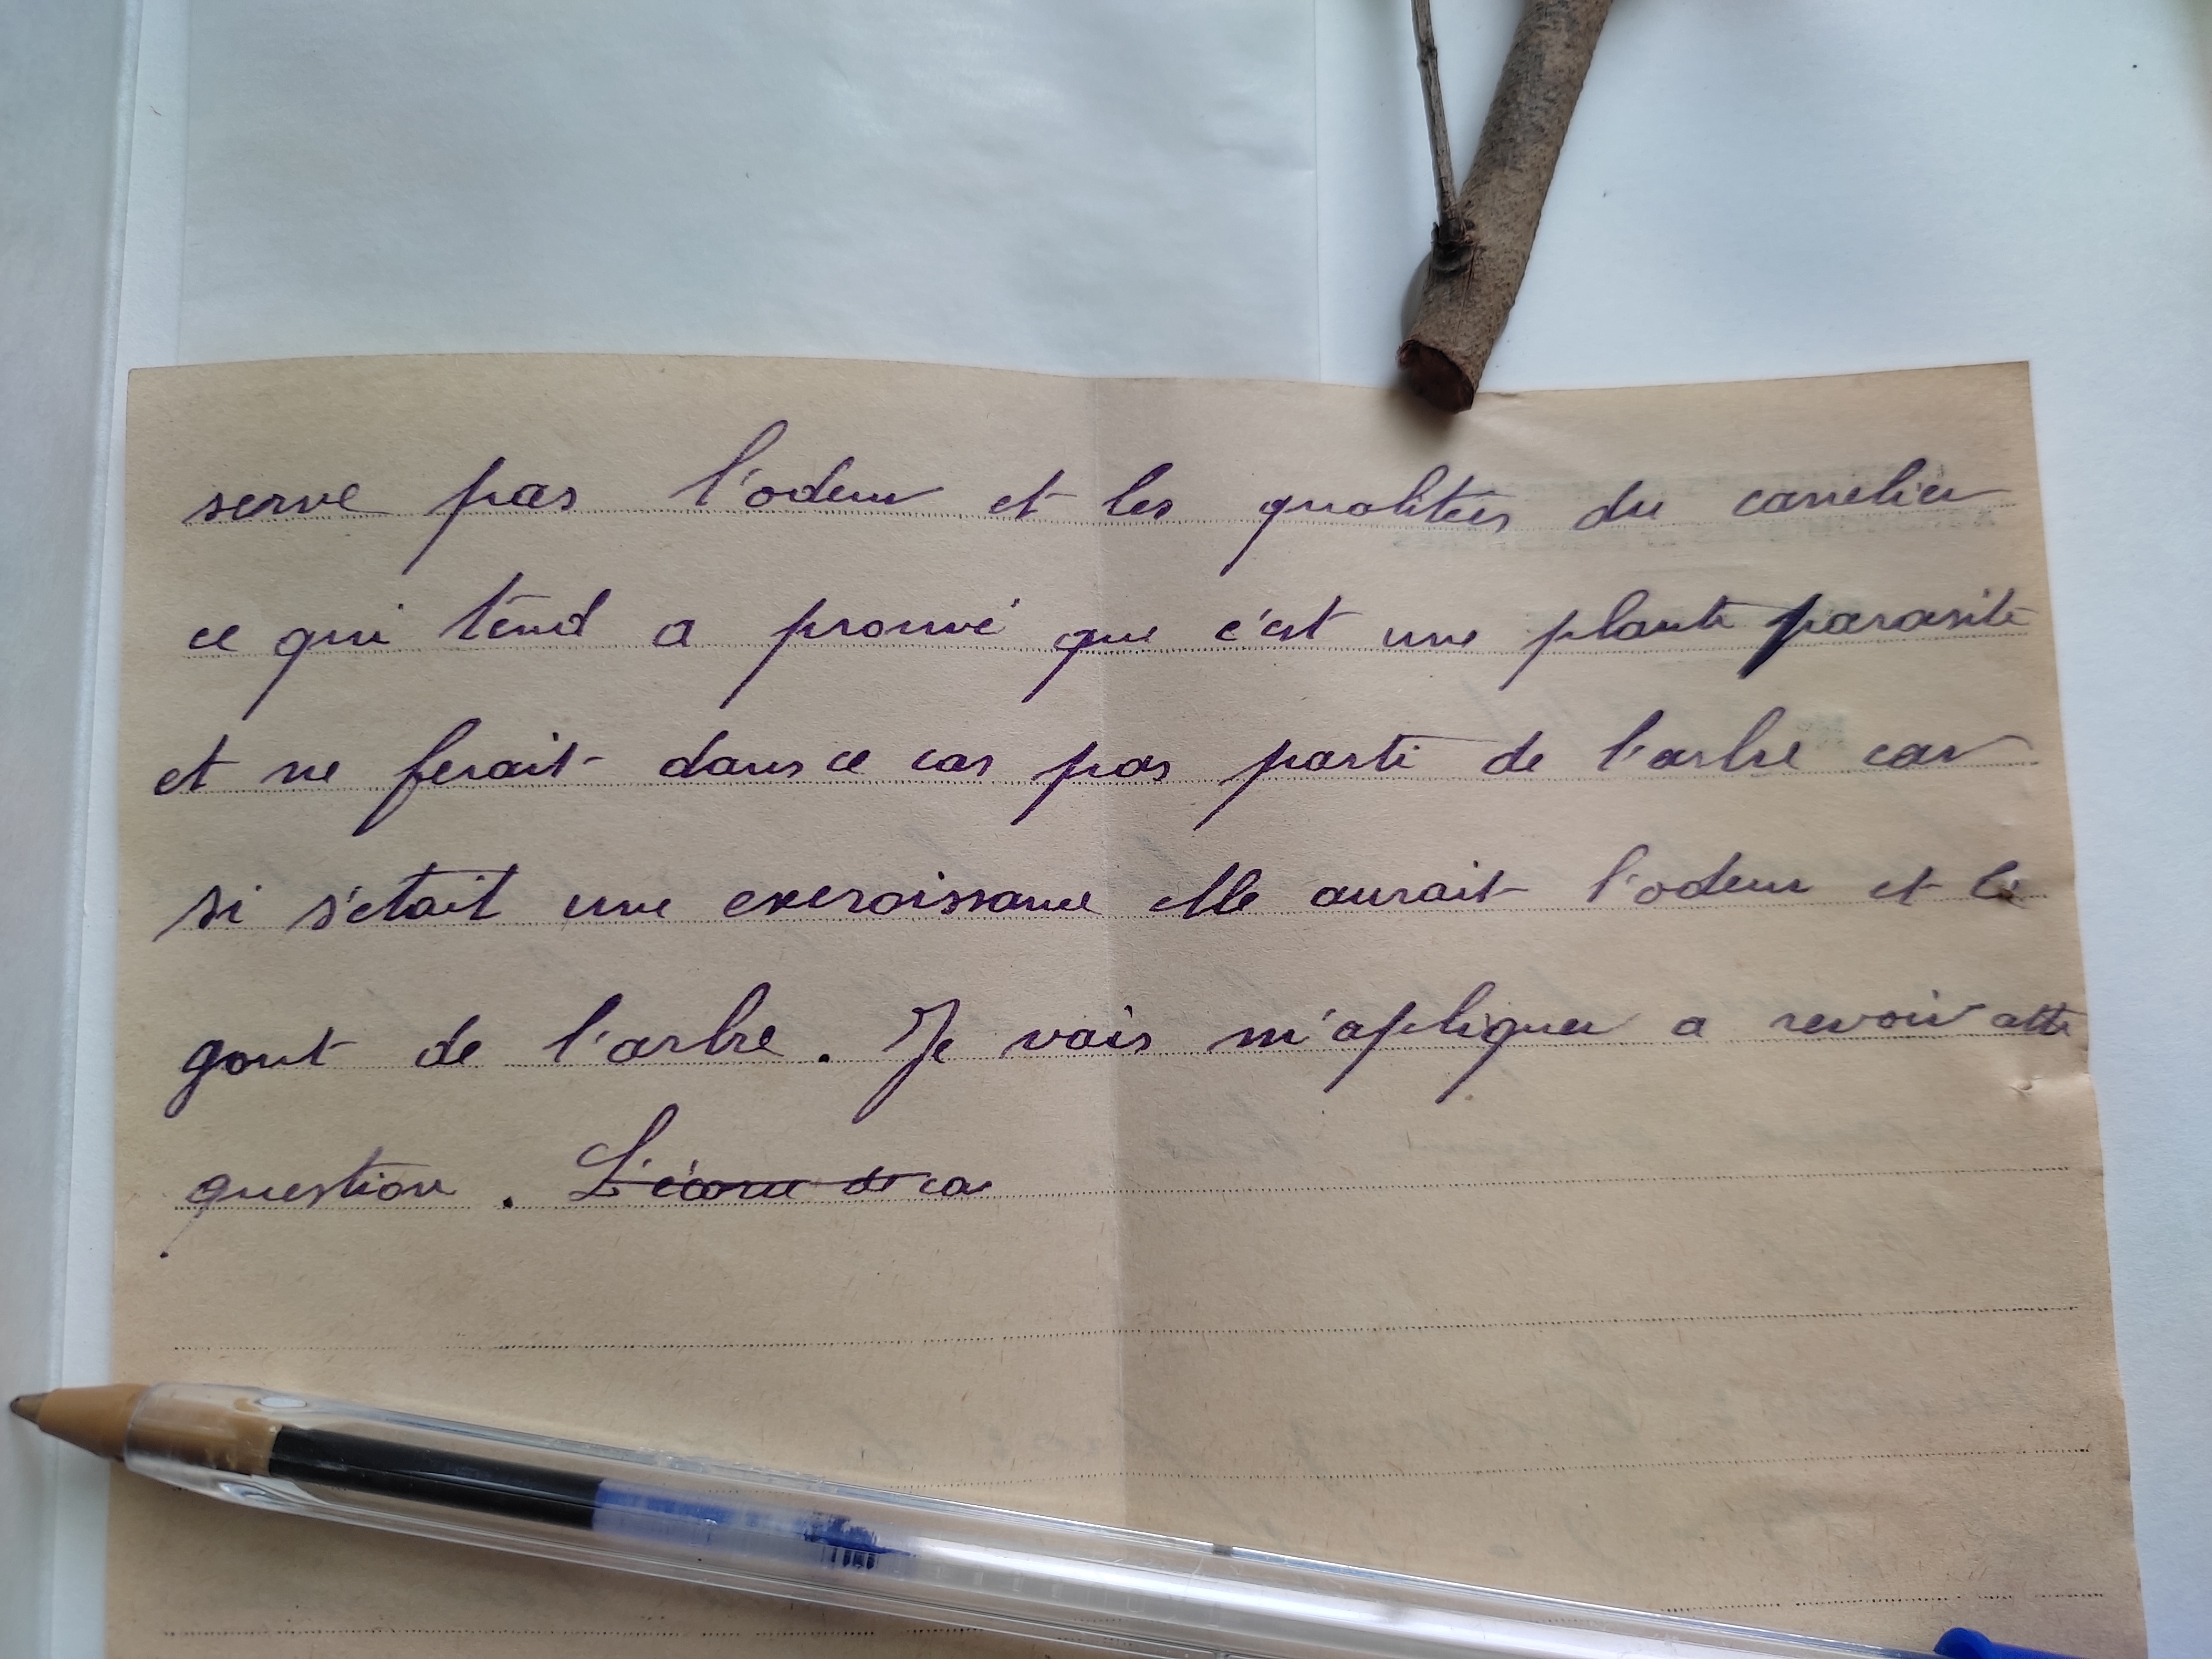 serve pas l'odeur et les qualitées du canelier
ce qui tend a prouvé que c'est une plante parasite
et ne ferait dans ce cas pas parti de l'arbre car
si s'etait une excroissance elle aurait l'odeur et le
gout de l'arbre. Je vais m'apliquer a revoir cette
question. L'écorce de ca